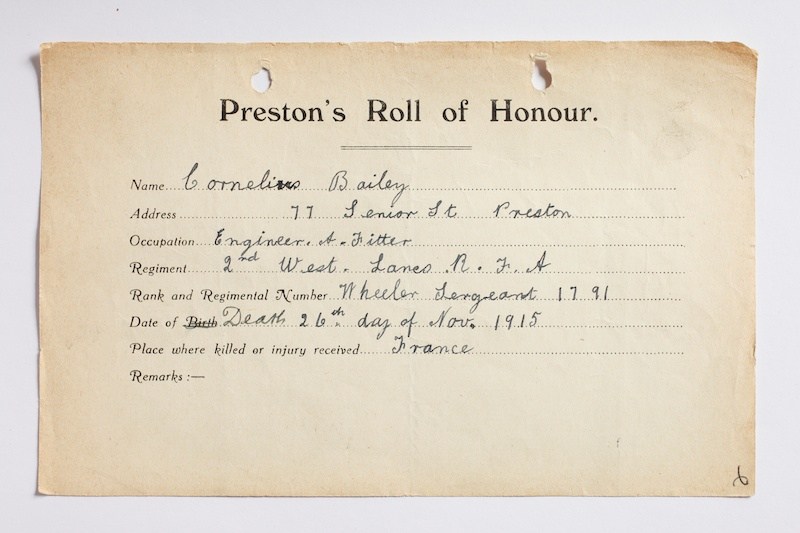 Preston's Roll of Honour.
Name Cornelius Bailey
Address 77 Senior St Preston
Occupation Engineer. A. Fitter
Regiment 2nd West. Lancs R. F. A
Rank and Regimental Number Wheeler Sergeant 1791
Date of Birth Death 26th day of Nov. 1915
Place where killed or injury received France
Remarks :—